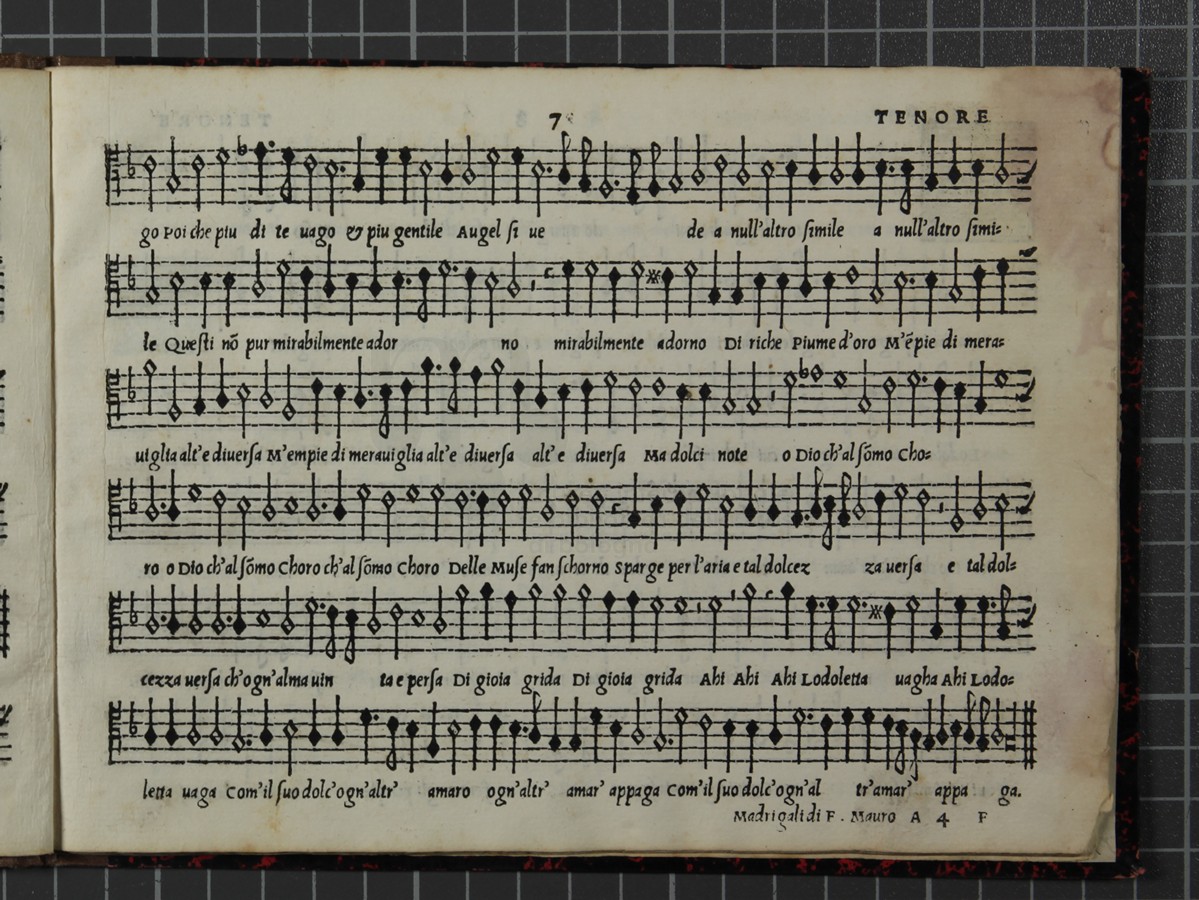 7
TENORE
go Poi che piu di te uago & piu gentile Augel ſi ue de a null'altro ſimile a null'altro ſimi=
le Queſti nō pur mirabilmente ador no mirabilmente adorno Di riche Piume d'oro M'ēpie di mera=
uiglia alt'e diuerſa M'empie di merauiglia alt'e diuerſa alt'e diuerſa Ma dolci note o Dio ch'al ſōmo Cho=
ro o Dio ch'al ſōmo Choro ch'al ſōmo Choro Delle Muſe fan ſchorno Sparge per l'aria e tal dolcez za uerſa e tal dol=
cezza uerſa ch'ogn'alma uin ta e perſa Di gioia grida Di gioia grida Ahi Ahi Ahi Lodoletta uagha Ahi Lodo=
letta uaga Com'il ſuo dolc'ogn'altr' amaro ogn'altr' amar' appaga Com'il ſuo dolc'ogn'al tr'amar' appa ga.
Madrigali di F. Mauro A 4 F